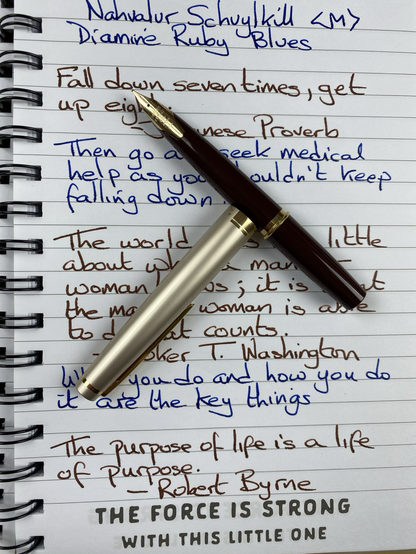 Nahvalur Schuylkill <M>
Diamine Ruby Blues
Fall down seven times, get
up
Proverb
Then go seek medical
help as you keep
falling down
The world little
about
woman ; it is
the woman is able
to counts.
T. Washington
you do and how you do
it are the key things
The purpose of life is a life
of purpose.
- Robert Byrne
THE FORCE IS STRONG
WITH THIS LITTLE ONE